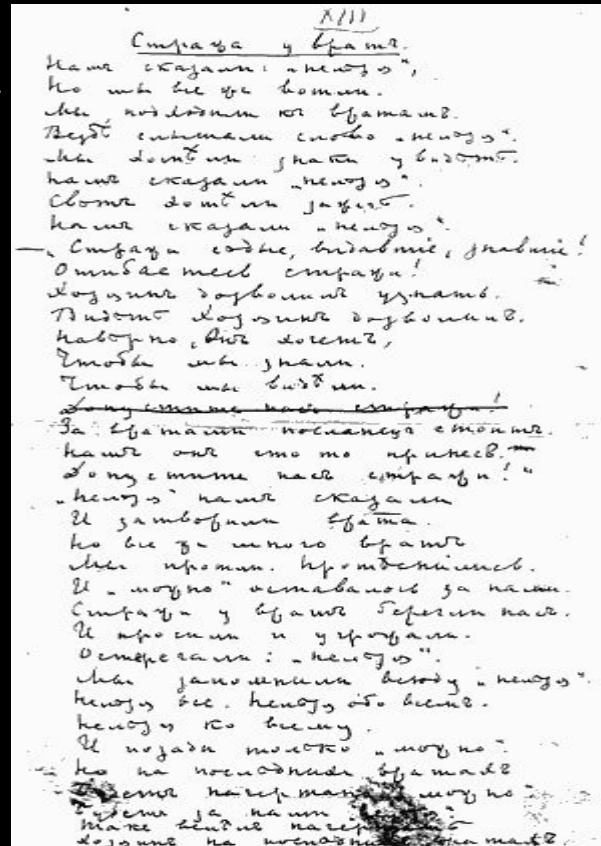 XIII
Стража у вратъ.
Намъ сказали: „нельзя“,
Но мы все же вошли.
Мы подходили къ вратамъ.
Вездѣ слышали слово „нельзя“.
Мы хотѣли знаки увидѣть.
Намъ сказали „нельзя“.
Свѣтъ хотѣли зажечь.
Намъ сказали „нельзя“.
— „Стражи сѣдые, видавшіе, знавшіе!
Ошибаетесь стражи!
Хозяинъ дозволилъ узнать.
Видѣть Хозяинъ дозволилъ.
Навѣрно, Онъ хочетъ,
Чтобы мы знали.
Чтобы мы видѣли.
Допустите насъ стражи!
За вратами посланецъ стоитъ.
Намъ онъ что то принесъ.
Допустите насъ стражи!“
„Нельзя“ намъ сказали
И затворили врата.
Но все же много вратъ
Мы прошли. Протѣснились.
И „можно“ оставалось за нами.
Стражи у вратъ берегли насъ.
И просили и угрожали.
Остерегали: „нельзя“.
Мы заполнили всюду „нельзя“.
Нельзя все. Нельзя обо всемъ.
Нельзя ко всему.
И позади только „можно“.
Но на послѣднихъ вратахъ
начертано можно
за нами
Такъ велѣлъ
Хозяинъ на послѣднихъ вратахъ